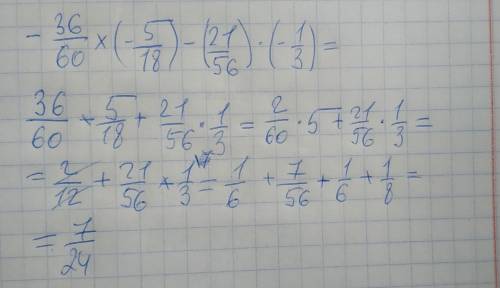 - 36/60 × (- 5/18) - (21/56) · (- 1/3) =
36/60 · 5/18 + 21/56 · 1/3 = 2/60 · 5 + 21/56 · 1/3 =
= 2/12 + 21/56 × 1/3 = 1/6 + 7/56 + 1/6 + 1/8 =
= 7/24